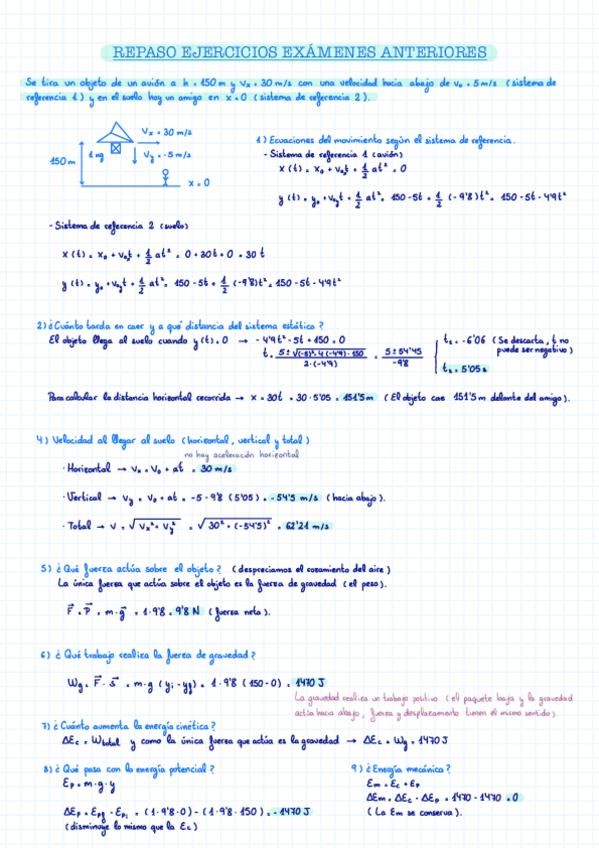 REPASO EJERCICIOS EXÁMENES ANTERIORES
Se tira un objeto de un avión a h = 150 m y Vx = 30 m/s con una velocidad hacia abajo de v₀ = 5 m/s (sistema de
referencia 1) y en el suelo hay un amigo en x = 0 (sistema de referencia 2).
Vx = 30 m/s
150 m
1 kg
Vy = -5 m/s
x = 0
1) Ecuaciones del movimiento según el sistema de referencia.
- Sistema de referencia 1 (avión)
x(t) = x₀ + v₀ₓt + 1/2 at² = 0
y(t) = y₀ + v₀ᵧt + 1/2 at² = 150 - 5t + 1/2 (-9'8)t² = 150 - 5t - 4'9t²
- Sistema de referencia 2 (suelo)
x(t) = x₀ + v₀ₓt + 1/2 at² = 0 + 30t + 0 = 30t
y(t) = y₀ + v₀ᵧt + 1/2 at² = 150 - 5t + 1/2 (-9'8)t² = 150 - 5t - 4'9t²
2) ¿Cuánto tarda en caer y a qué distancia del sistema estático?
El objeto llega al suelo cuando y(t) = 0 → -4'9t² - 5t + 150 = 0
t = 5 ± √(-5)² - 4·(-4'9)·150 / 2·(-4'9) = 5 ± 54'45 / -9'8
t₁ = -6'06 (Se descarta, t no
puede ser negativo)
t₂ = 5'05 s
Para calcular la distancia horizontal recorrida → x = 30t = 30·5'05 = 151'5 m (El objeto cae 151'5 m delante del amigo).
4) Velocidad al llegar al suelo (horizontal, vertical y total)
no hay aceleración horizontal
· Horizontal → Vx = V₀ + at = 30 m/s
· Vertical → Vy = V₀ + at = -5 - 9'8 (5'05) = -54'5 m/s (hacia abajo).
· Total → V = √Vx² + Vy² = √30² + (-54'5)² = 62'21 m/s
5) ¿Qué fuerza actúa sobre el objeto? (despreciamos el rozamiento del aire)
La única fuerza que actúa sobre el objeto es la fuerza de gravedad (el peso).
F⃗ = P⃗ = m·g⃗ = 1·9'8 = 9'8 N (fuerza neta).
6) ¿Qué trabajo realiza la fuerza de gravedad?
Wg = F⃗ · s⃗ = m·g (yi - yf) = 1·9'8 (150 - 0) = 1470 J
La gravedad realiza un trabajo positivo (el paquete baja y la gravedad
actúa hacia abajo, fuerza y desplazamiento tienen el mismo sentido).
7) ¿Cuánto aumenta la energía cinética?
ΔEc = Wtotal y como la única fuerza que actúa es la gravedad → ΔEc = Wg = 1470 J
8) ¿Qué pasa con la energía potencial?
Ep = m·g·y
ΔEp = Epf - Epi = (1·9'8·0) - (1·9'8·150) = -1470 J
(disminuye lo mismo que la Ec)
9) ¿Energía mecánica?
Em = Ec + Ep
ΔEm = ΔEc + ΔEp = 1470 - 1470 = 0
(La Em se conserva).